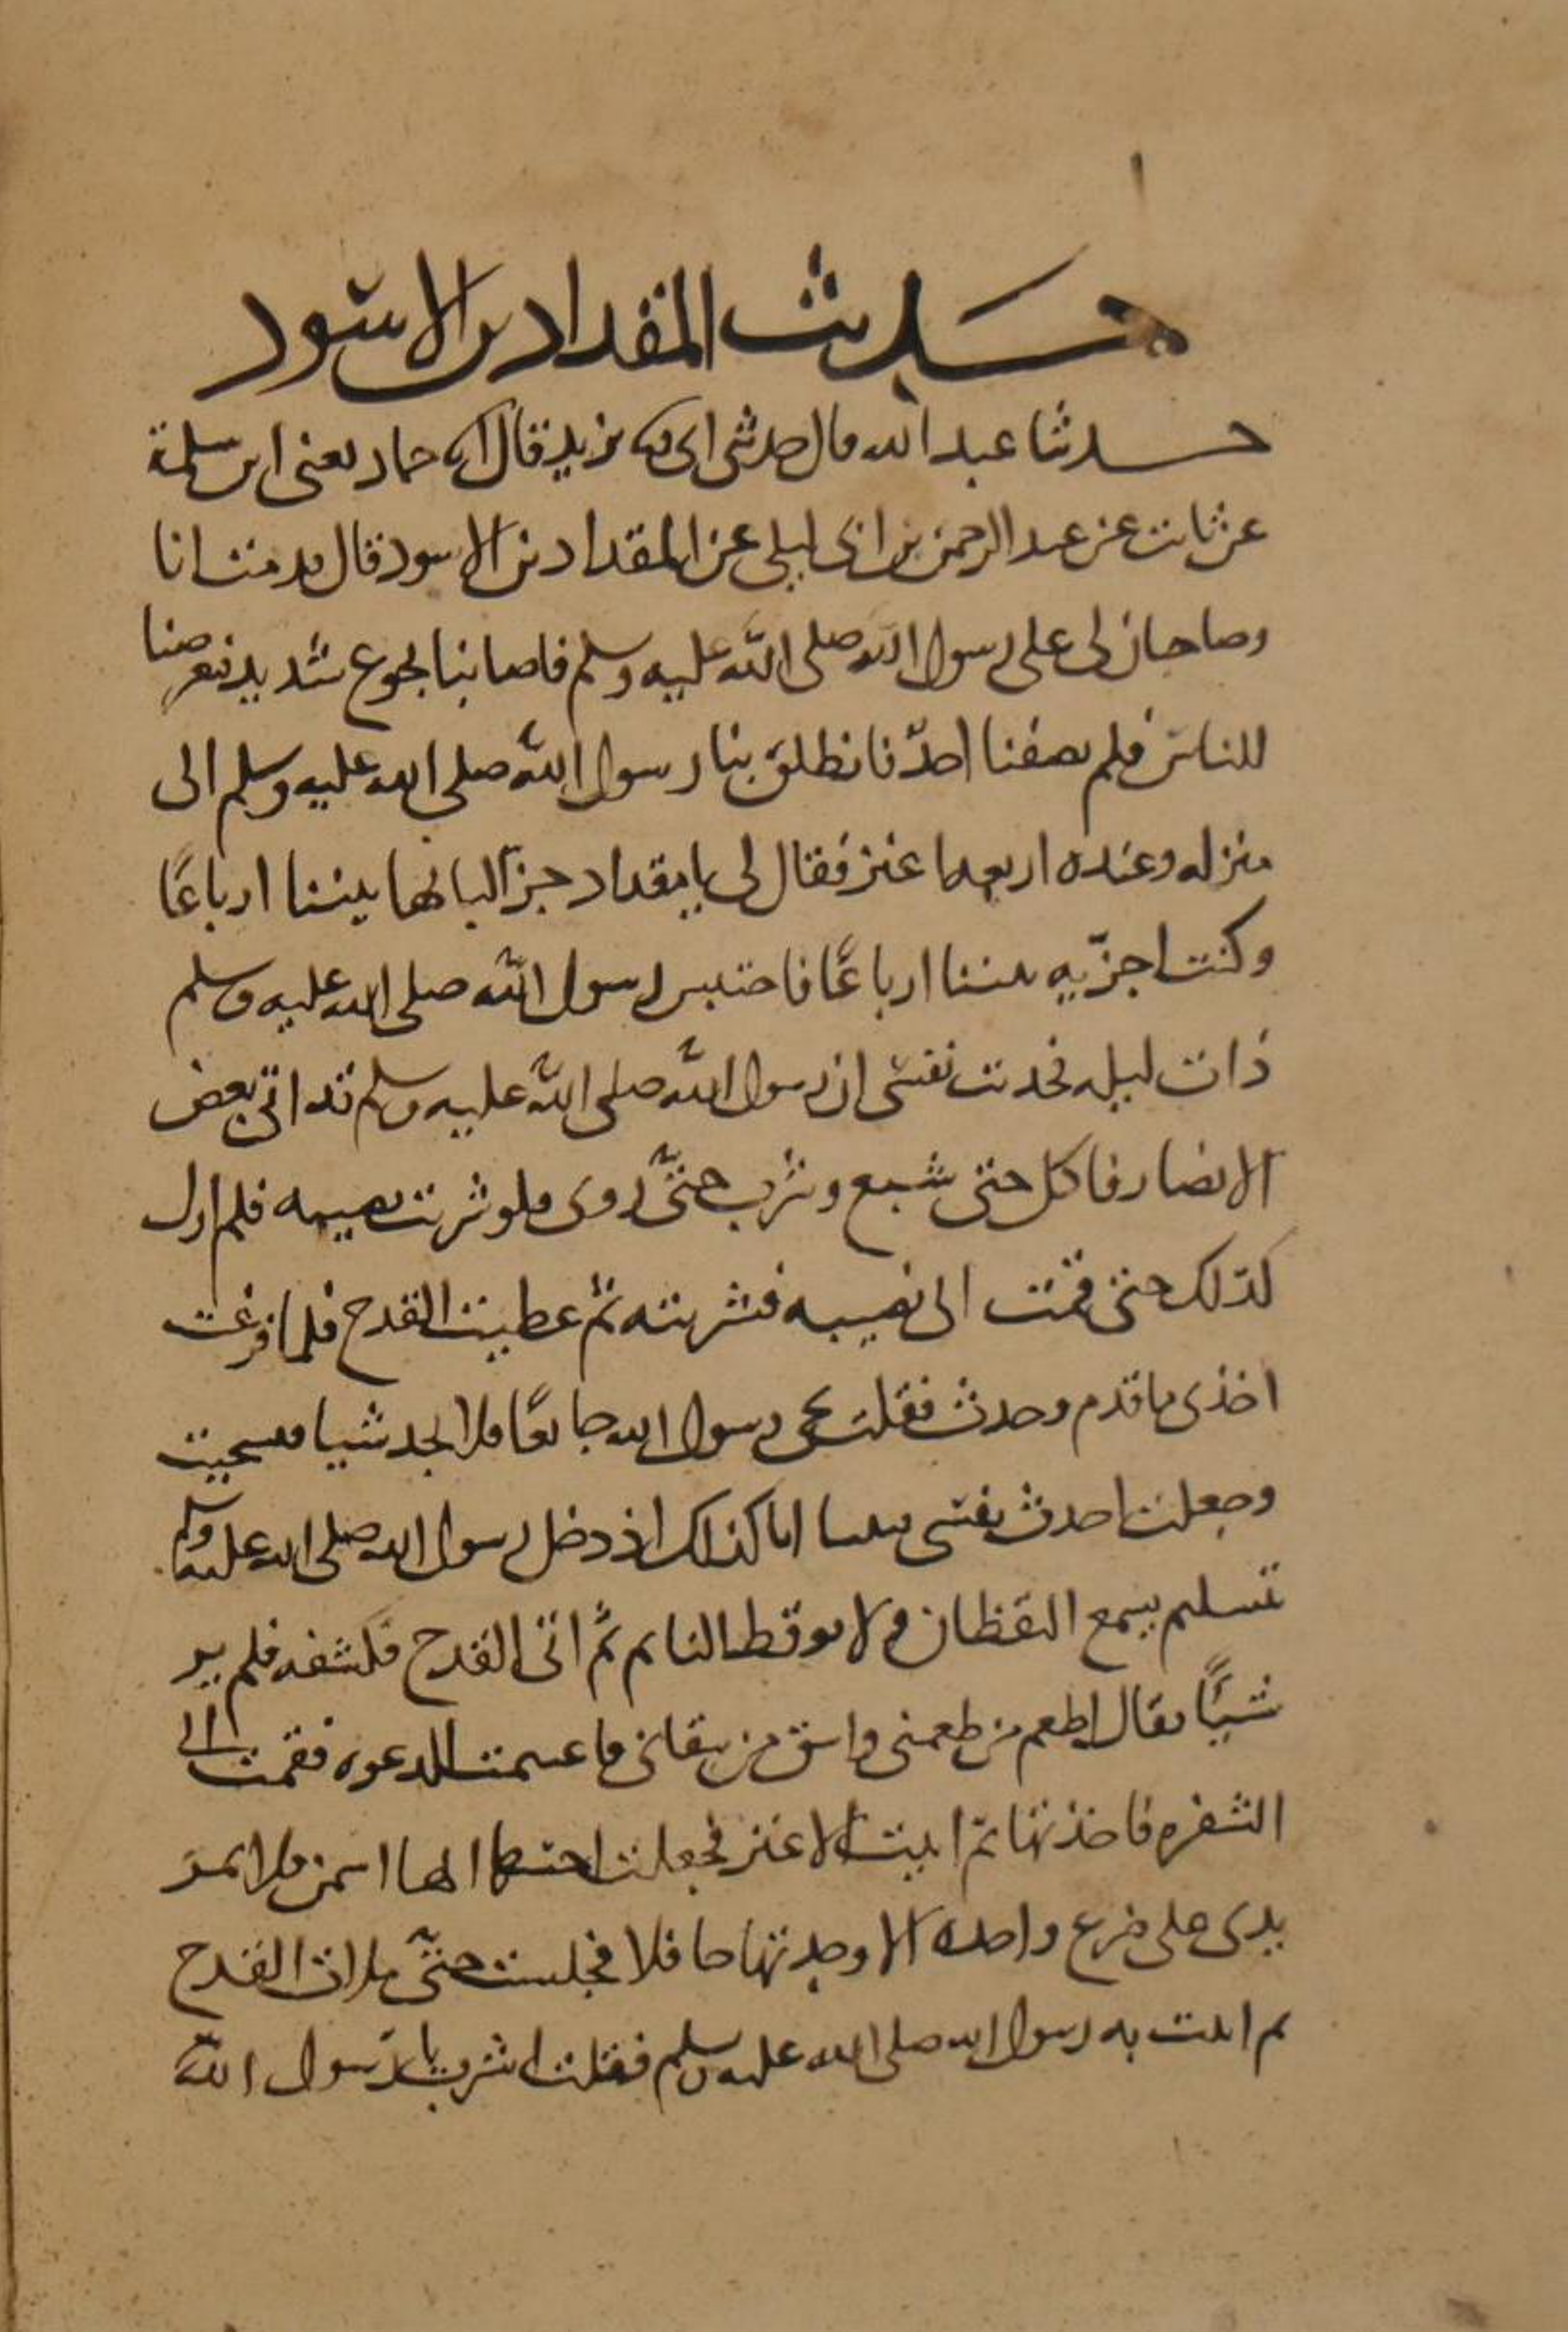 حديث المقداد بن الاسود
حدثنا عبد الله قال حدثني ابي ثنا يزيد قال انا حماد يعني ابن سلمة
عن ثابت عن عبد الرحمن بن ابى ليلى عن المقداد بن الاسود قال قدمت انا
وصاحبان لى على رسول الله صلى الله عليه وسلم فاصابنا جوع شديد فتعرضنا
للناس فلم يضفنا احد فانطلق بنا رسول الله صلى الله عليه وسلم الى
منزله وعنده اربعه اعنز فقال لى يا مقداد جز البانها بيننا ارباعًا
وكنت اجزيه بيننا ارباعًا فاحتبس رسول الله صلى الله عليه وسلم
ذات ليله فحدثت نفسى ان رسول الله صلى الله عليه وسلم قد اتى بعض
الانصار فاكل حتى شبع وشرب حتى روى فلو شربت نصيبه فلم ازل
كذلك حتى قمت الى نصيبه فشربته ثم غطيت القدح فلما فرغت
اخذى ما قدم وحدث فقلت يجى رسول الله جايعًا فلا يجد شيا فسجيت
وجعلت احدث نفسى فبينا انا كذلك اذ دخل رسول الله صلى الله عليه وسلم
تسليم يسمع اليقظان ولا يوقظ النايم ثم اتى القدح فكشفه فلم ير
شيًا فقال اطعم من طعمنى واسق من سقانى فاغتنمت الدعوه فقمت الى
الشفره فاخذتها ثم اتيت الاعنز فجعلت اجتسها ايها اسمن فلا تمر
يدى على ضرع واحده الا وجدتها حافلا فحلبت حتى ملات القدح
ثم اتيت به رسول الله صلى الله عليه وسلم فقلت اشرب يا رسول الله